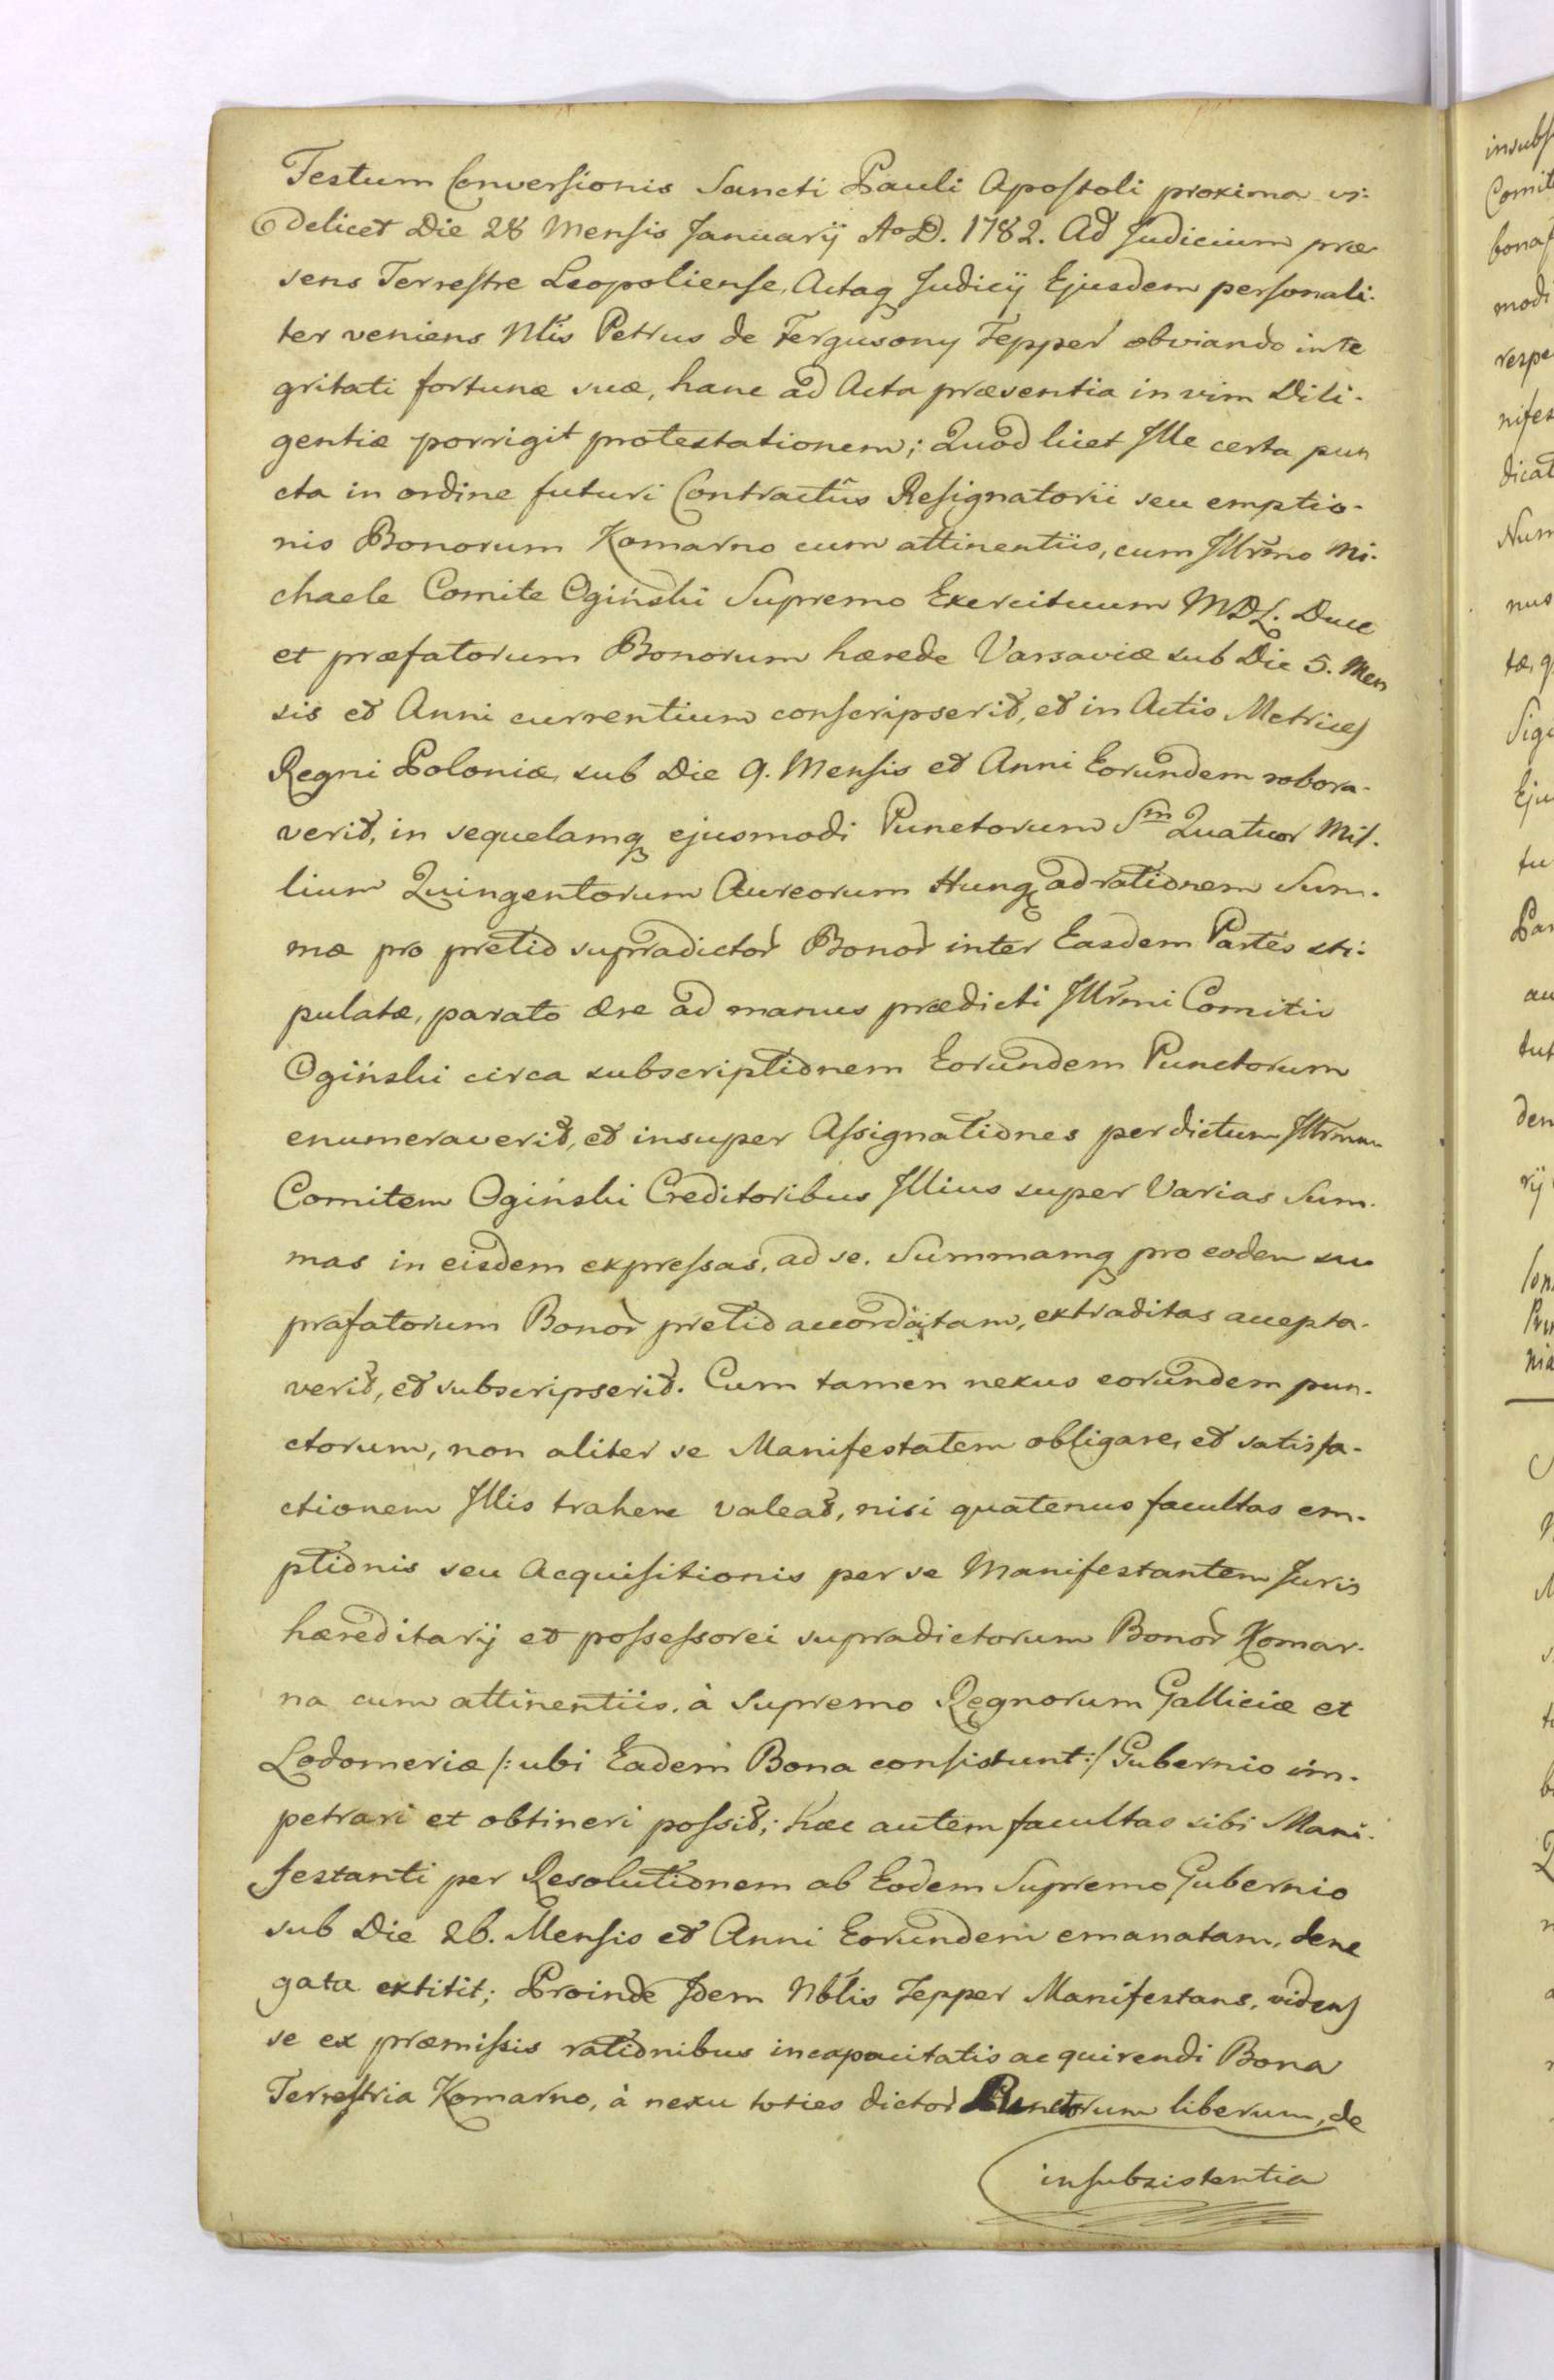 Festum Conversionis Sancti Pauli Apostoli proxima vi-
delicet Die 28 Mensis Januarij Ao D. 1782. Ad Judicium præ
sens Terrestre Leopoliense, Actaq Judicij Ejusdem personali-
ter veniens Nłis Petrus de Fergusony Tepper obviando inte
gritati fortunæ suæ, hanc ad Acta præsentia in vim Dili-
gentiæ porrigit protestationem; Quod licet Jlle certa pun
cta in ordine futuri Contractûs Resignatorii seu emptio-
nis Bonorum Komarno cum attinentiis, cum Jllrmo Mi-
chaele Comite Ogiński Supremo Exercituum MDL. Duce
et præfatorum Bonorum hærede Varsaviæ sub Die 5. Men
sis et Anni currentium conscripserit, et in Actis Metrices
Regni Poloniæ, sub Die 9. Mensis et Anni Eorundem robora-
verit, in sequelamq ejusmodi Punctorum Sm Quatuor Mil-
lium Quingentorum Aureorum Hung ad rationem Sum-
mæ pro pretio supradictor Bonor inter Easdem Partes sti-
pulatæ, parato ære ad manus prædicti Jllrmi Comitis
Ogiński circa subscriptionem Eorundem Punctorum
enumeraverit, et insuper Assignationes per dictum Jllrmum
Comitem Ogiński Creditoribus Jllius super Varias Sum-
mas in eisdem expressas, ad se. Summamq pro eodem su
præfatorum Bonor pretio accordatam, extraditas accepta-
verit, et subscripserit. Cum tamen nexus eorundem pun-
ctorum, non aliter se Manifestatem obligare, et satisfa-
ctionem Jllis trahere valeat, nisi quatenus facultas em-
ptionis seu Acquisitionis per se Manifestantem Juris
hæreditarij et possessorei supradictorum Bonor Komar-
na cum attinentiis, à Supremo Regnorum Galliciæ et
Lodomeriæ /: ubi Eadem Bona consistunt :/ Gubernio im-
petrari et obtineri possit; hæc autem facultas sibi Mani-
festanti per Resolutionem ab Eodem Supremo Gubernio
sub Die 26. Mensis et Anni Eorundem emanatam, dene
gata extitit; Proinde Jdem Nblis Tepper Manifestans, videns
se ex præmissis rationibus incapacitatis acquirendi Bona
Terrestria Komarno, à nexu toties dictor Punctorum liberum, de
insubsistentia